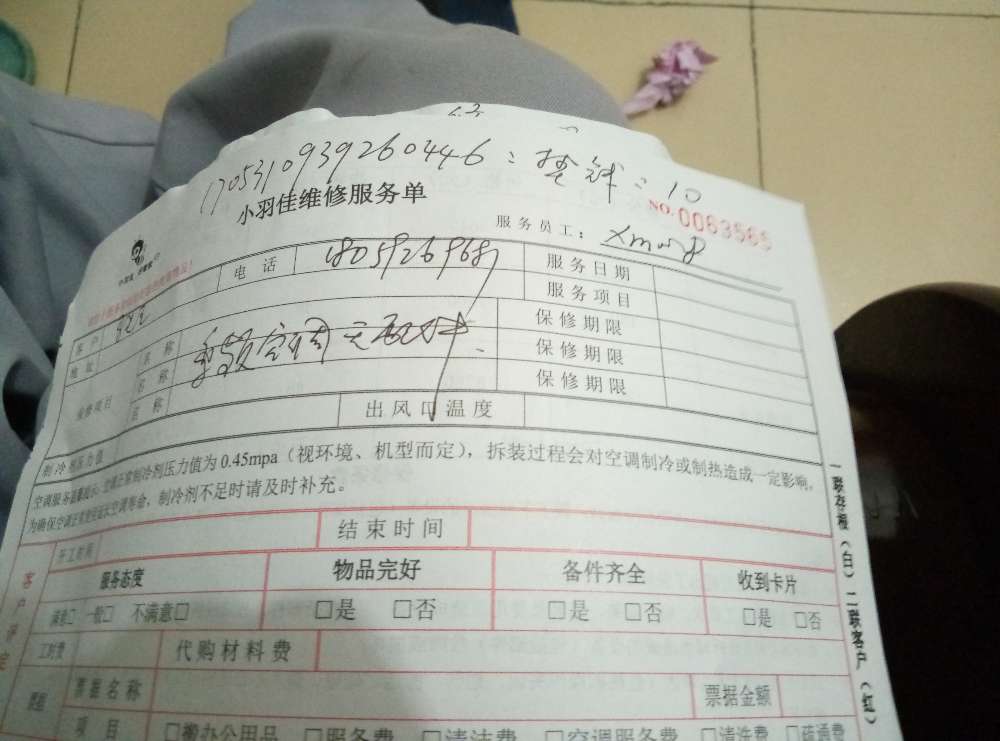 1705310939260446:
:10
小羽佳维修服务单
NO.0063565
服务员工:
客户
电话
18059269681
服务日期
地址
服务项目
维修项目
名称
空调
保修期限
名称
保修期限
名称
保修期限
制冷剂压力值
出风口温度
空调服务温馨提示:空调正常制冷剂压力值为0.45mpa(视环境、机型而定),拆装过程会对空调制冷或制热造成一定影响,
为确保空调正常使用延长空调寿命,制冷剂不足时请及时补充。
开工时间
结束时间
客户评定
服务态度
物品完好
备件齐全
收到卡片
满意□ 一般□ 不满意□
□是 □否
□是 □否
□是 □否
工时费
代购材料费
票据
票据名称
票据金额
项目
□搬办公用品 □服务费 □清洁费 □空调服务费 □清洗费 □疏通费
一联存根(白) 二联客户(红)